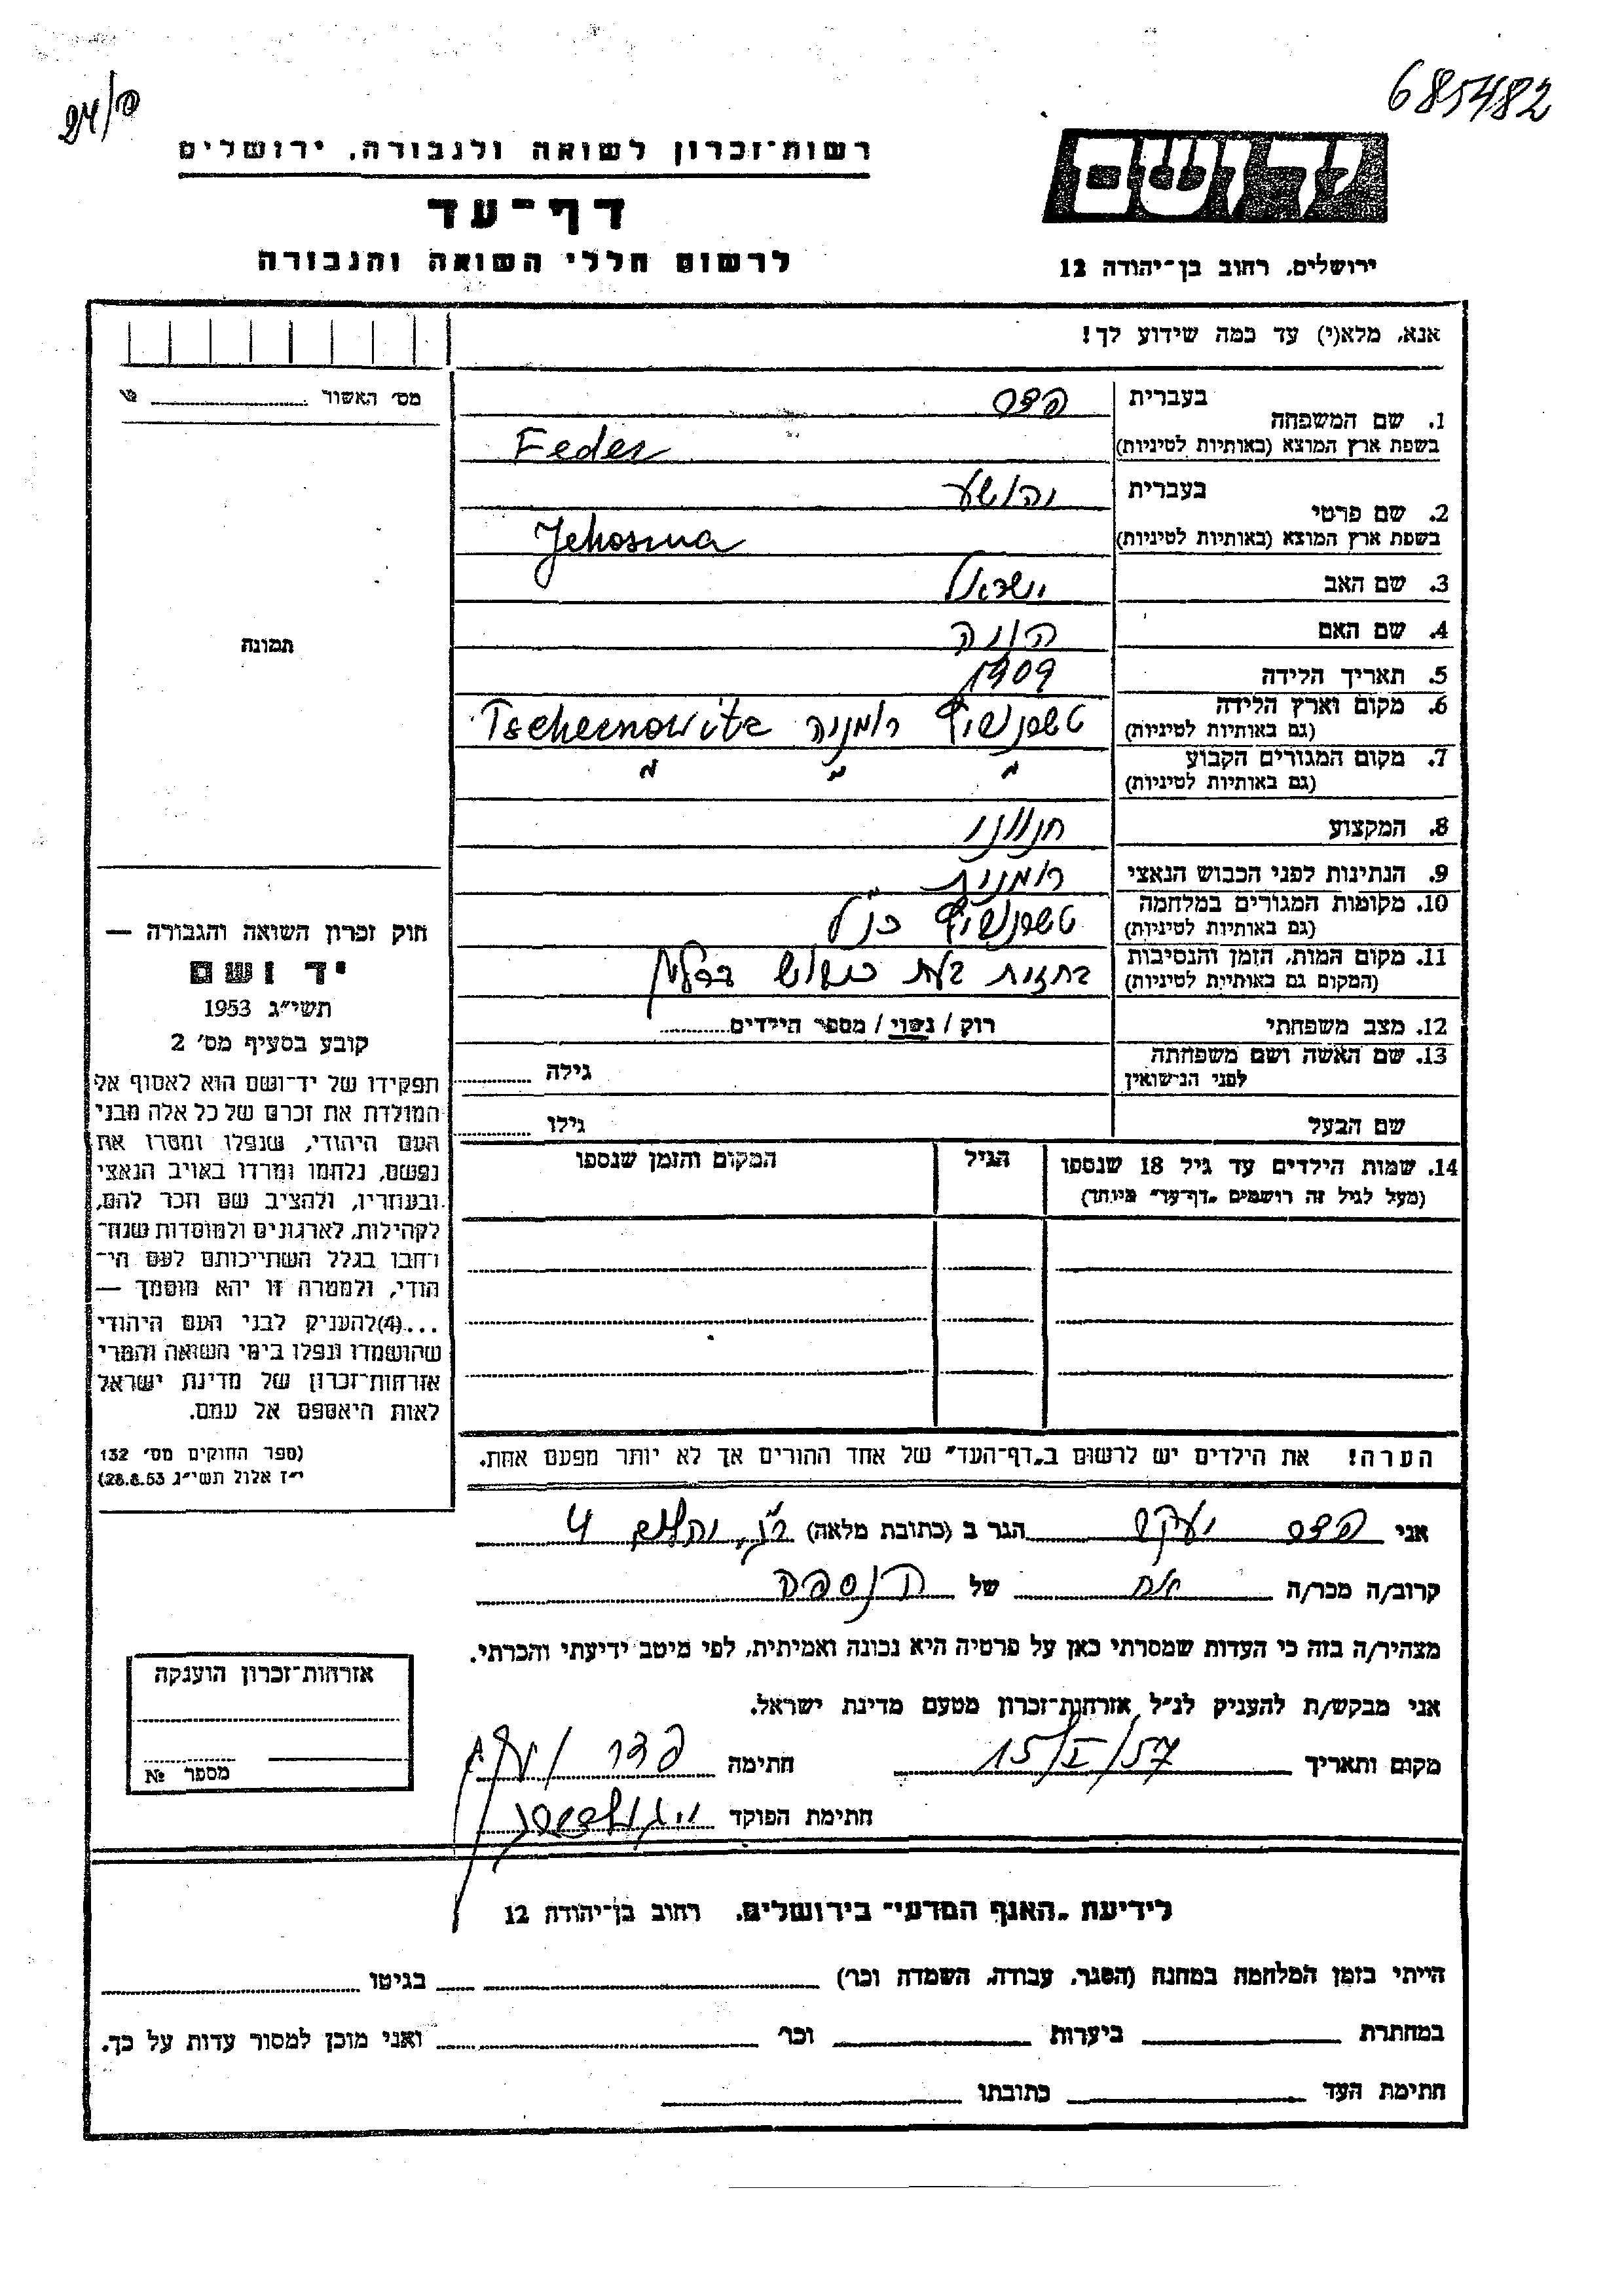 685482
24/פ
רשות־זכרון לשואה ולגבורה, ירושלים
דף־עד
לרשום חללי השואה והגבורה
יד ושם
ירושלים, רחוב בן־יהודה 12
אנא, מלא(י) עד כמה שידוע לך!
מס׳ האשור
1. שם המשפחה בעברית פדר
בשפת ארץ המוצא (באותיות לטיניות) Feder
2. שם פרטי בעברית יהושע
בשפת ארץ המוצא (באותיות לטיניות) Jehosua
3. שם האב ישראל
4. שם האם
5. תאריך הלידה 1909
6. מקום וארץ הלידה רומניה Tschernowitz
(גם באותיות לטיניות)
7. מקום המגורים הקבוע " " "
(גם באותיות לטיניות)
8. המקצוע חנווני
9. הנתינות לפני הכבוש הנאצי רומנית
10. מקומות המגורים במלחמה כנ"ל
(גם באותיות לטיניות)
11. מקום המות, הזמן והנסיבות בחזית בעת
(המקום גם באותיות לטיניות)
12. מצב משפחתי רוק / נשוי / מספר הילדים
13. שם האשה ושם משפחתה גילה
לפני הנישואין
שם הבעל גילו
14. שמות הילדים עד גיל 18 שנספו הגיל המקום והזמן שנספו
(מעל לגיל זה רושמים „דף־עד" מיוחד)
הערה! את הילדים יש לרשום ב„דף־העד" של אחד ההורים אך לא יותר מפעם אחת.
תמונה
חוק זכרון השואה והגבורה —
יד ושם
תשי״ג 1953
קובע בסעיף מס׳ 2
תפקידו של יד־ושם הוא לאסוף אל
המולדת את זכרם של כל אלה מבני
העם היהודי, שנפלו ומסרו את
נפשם, נלחמו ומרדו באויב הנאצי
ובעוזריו, ולהציב שם וזכר להם,
לקהילות, לארגונים ולמוסדות שנח־
רחבו בגלל השתייכותם לעם הי־
הודי, ולמטרה זו יהא מוסמך —
...(4)להעניק לבני העם היהודי
שהושמדו ונפלו בימי השואה והמרי
אזרחות־זכרון של מדינת ישראל
לאות היאספם אל עמם.
(ספר החוקים מס׳ 132
י״ז אלול תשי״ג 28.8.53)
אני פדר יעקב הגר ב (כתובת מלאה) 4
קרוב/ה מכר/ה אח של הנספה
מצהיר/ה בזה כי העדות שמסרתי כאן על פרטיה היא נכונה ואמיתית, לפי מיטב ידיעתי והכרתי.
אני מבקש/ת להעניק לנ״ל אזרחות־זכרון מטעם מדינת ישראל.
מקום ותאריך 15/I/57 חתימה פדר יעקב
חתימת הפוקד
אזרחות־זכרון הוענקה
מספר №
לידיעת „האגף המדעי" בירושלים, רחוב בן־יהודה 12
הייתי בזמן המלחמה במחנה (הסגר, עבודה, השמדה וכר׳) בגיטו
במחתרת ביערות וכר׳ ואני מוכן למסור עדות על כך.
חתימת העד כתובתו